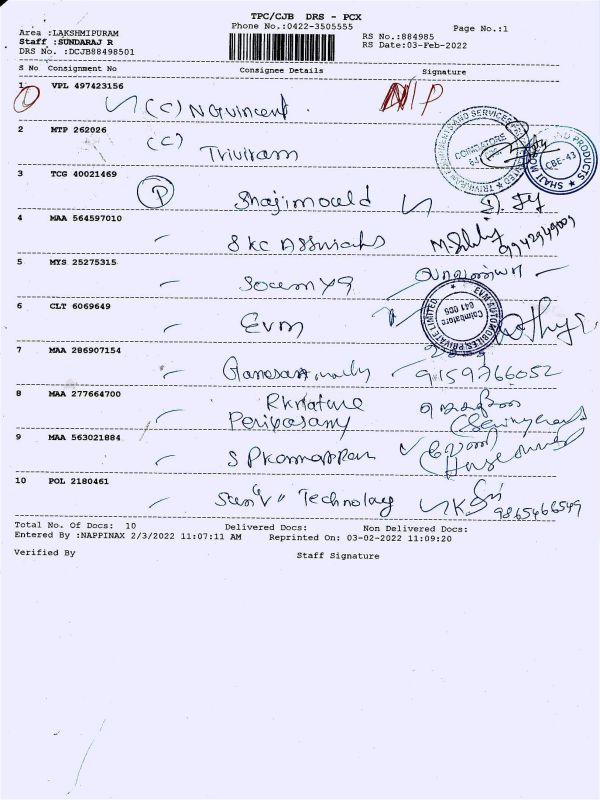 TPC/CJB DRS - PCX
Area :LAKSHMIPURAM
Phone No.:0422-3505555
Page No.:1
Staff :SUNDARAJ R
RS No.:884985
DRS No. :DCJB88498501
RS Date:03-Feb-2022
S No Consignment No Consignee Details Signature
1 VPL 497423156
(C) N Gvincent NIP
2 MTP 262026
(C) Triviram
COIMBATORE
CBE-43
3 TCG 40021469
P Shajimould
4 MAA 564597010
SKC Assosiates
9942949009
5 MYS 25275315
6 CLT 6069649
Evm
EVM AUTOMOBILES PRIVATE LIMITED
Coimbatore
641 006
7 MAA 286907154
9159766052
8 MAA 277664700
Rknature
Periyasamy
9 MAA 563021884
S P
10 POL 2180461
Technology 9865466549
Total No. Of Docs: 10 Delivered Docs: Non Delivered Docs:
Entered By :NAPPINAX 2/3/2022 11:07:11 AM Reprinted On: 03-02-2022 11:09:20
Verified By Staff Signature